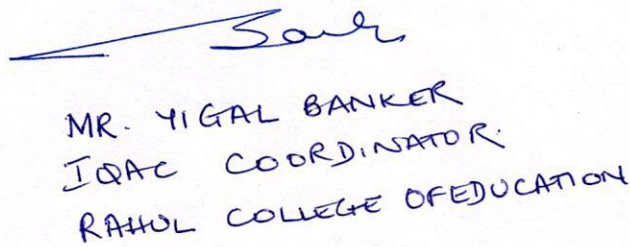 MR. YIGAL BANKER
IQAC COORDINATOR.
RAHUL COLLEGE OFEDUCATION